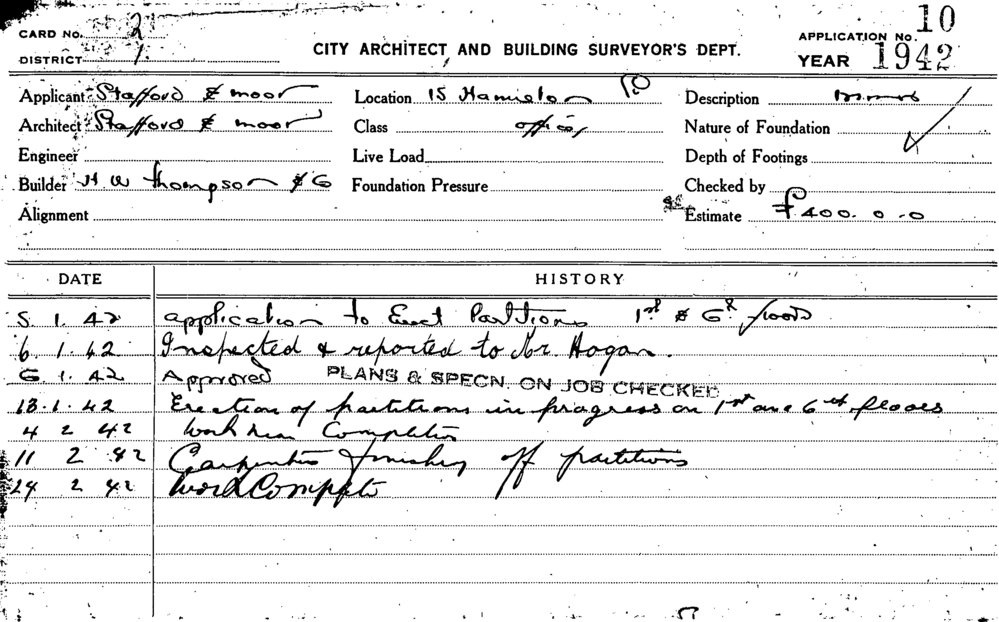 CARD No. 2
DISTRICT 1.
CITY ARCHITECT AND BUILDING SURVEYOR'S DEPT.
APPLICATION No. 10
YEAR 1942
Applicant Stafford & moor Location 15 Hamilton Description
Architect Stafford & moor Class offices Nature of Foundation
Engineer Live Load Depth of Footings
Builder H W Thompson & Co Foundation Pressure Checked by
Alignment Estimate £400. 0. 0
DATE HISTORY
5. 1. 42 application to Erect Partitions 1st & 6th floors
6. 1. 42 Inspected & reported to Mr. Hogan.
6. 1. 42 Approved PLANS & SPECN. ON JOB CHECKED
13. 1. 42 Erection of partitions in progress on 1st and 6th floors
4 2 42 Work near Completion
11 2 42 Carpenters finishing off partitions
24 2 42 Work Complete